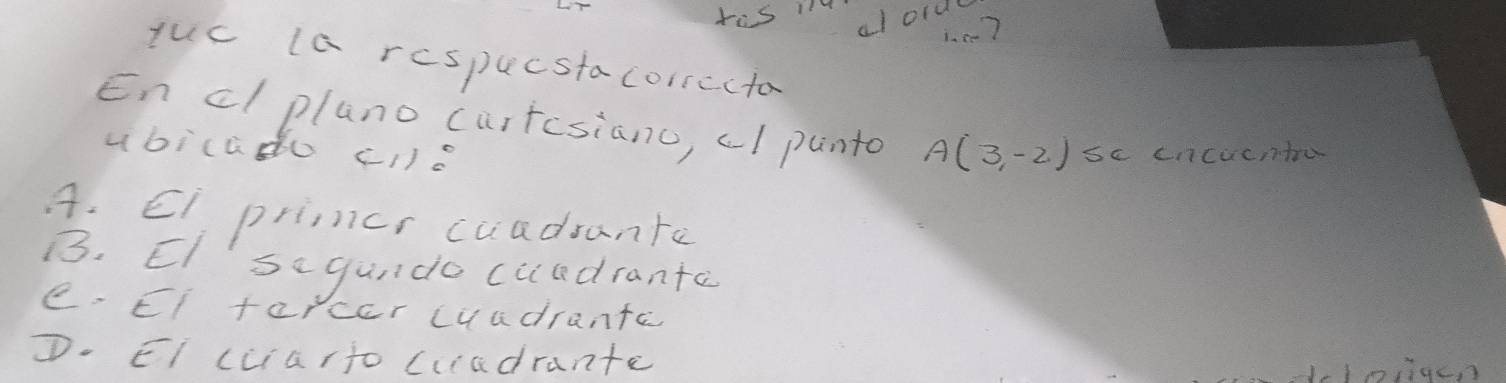 la respuesta correcta
En el plano cartesiano, el punto A(3,-2) se encuentra
ubicado en:
A. El primer cuadrante
B. El segundo cuadrante
C. El tercer cuadrante
D. El cuarto cuadrante
del origen